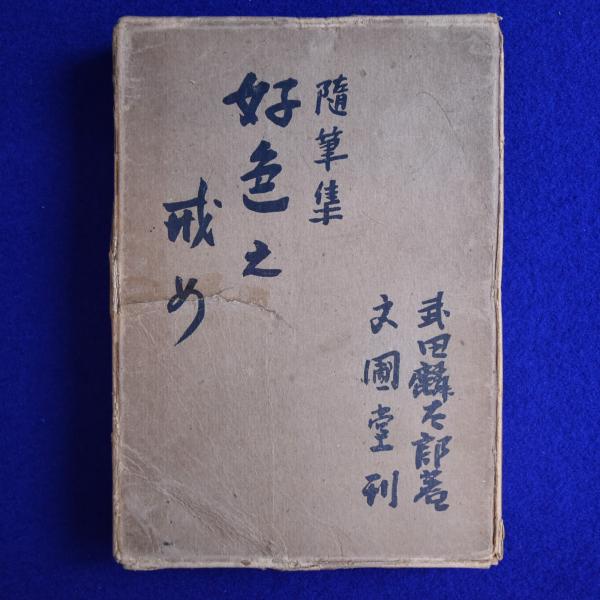 隨筆集
好色之
戒め
武田麟太郎著
文圃堂刊